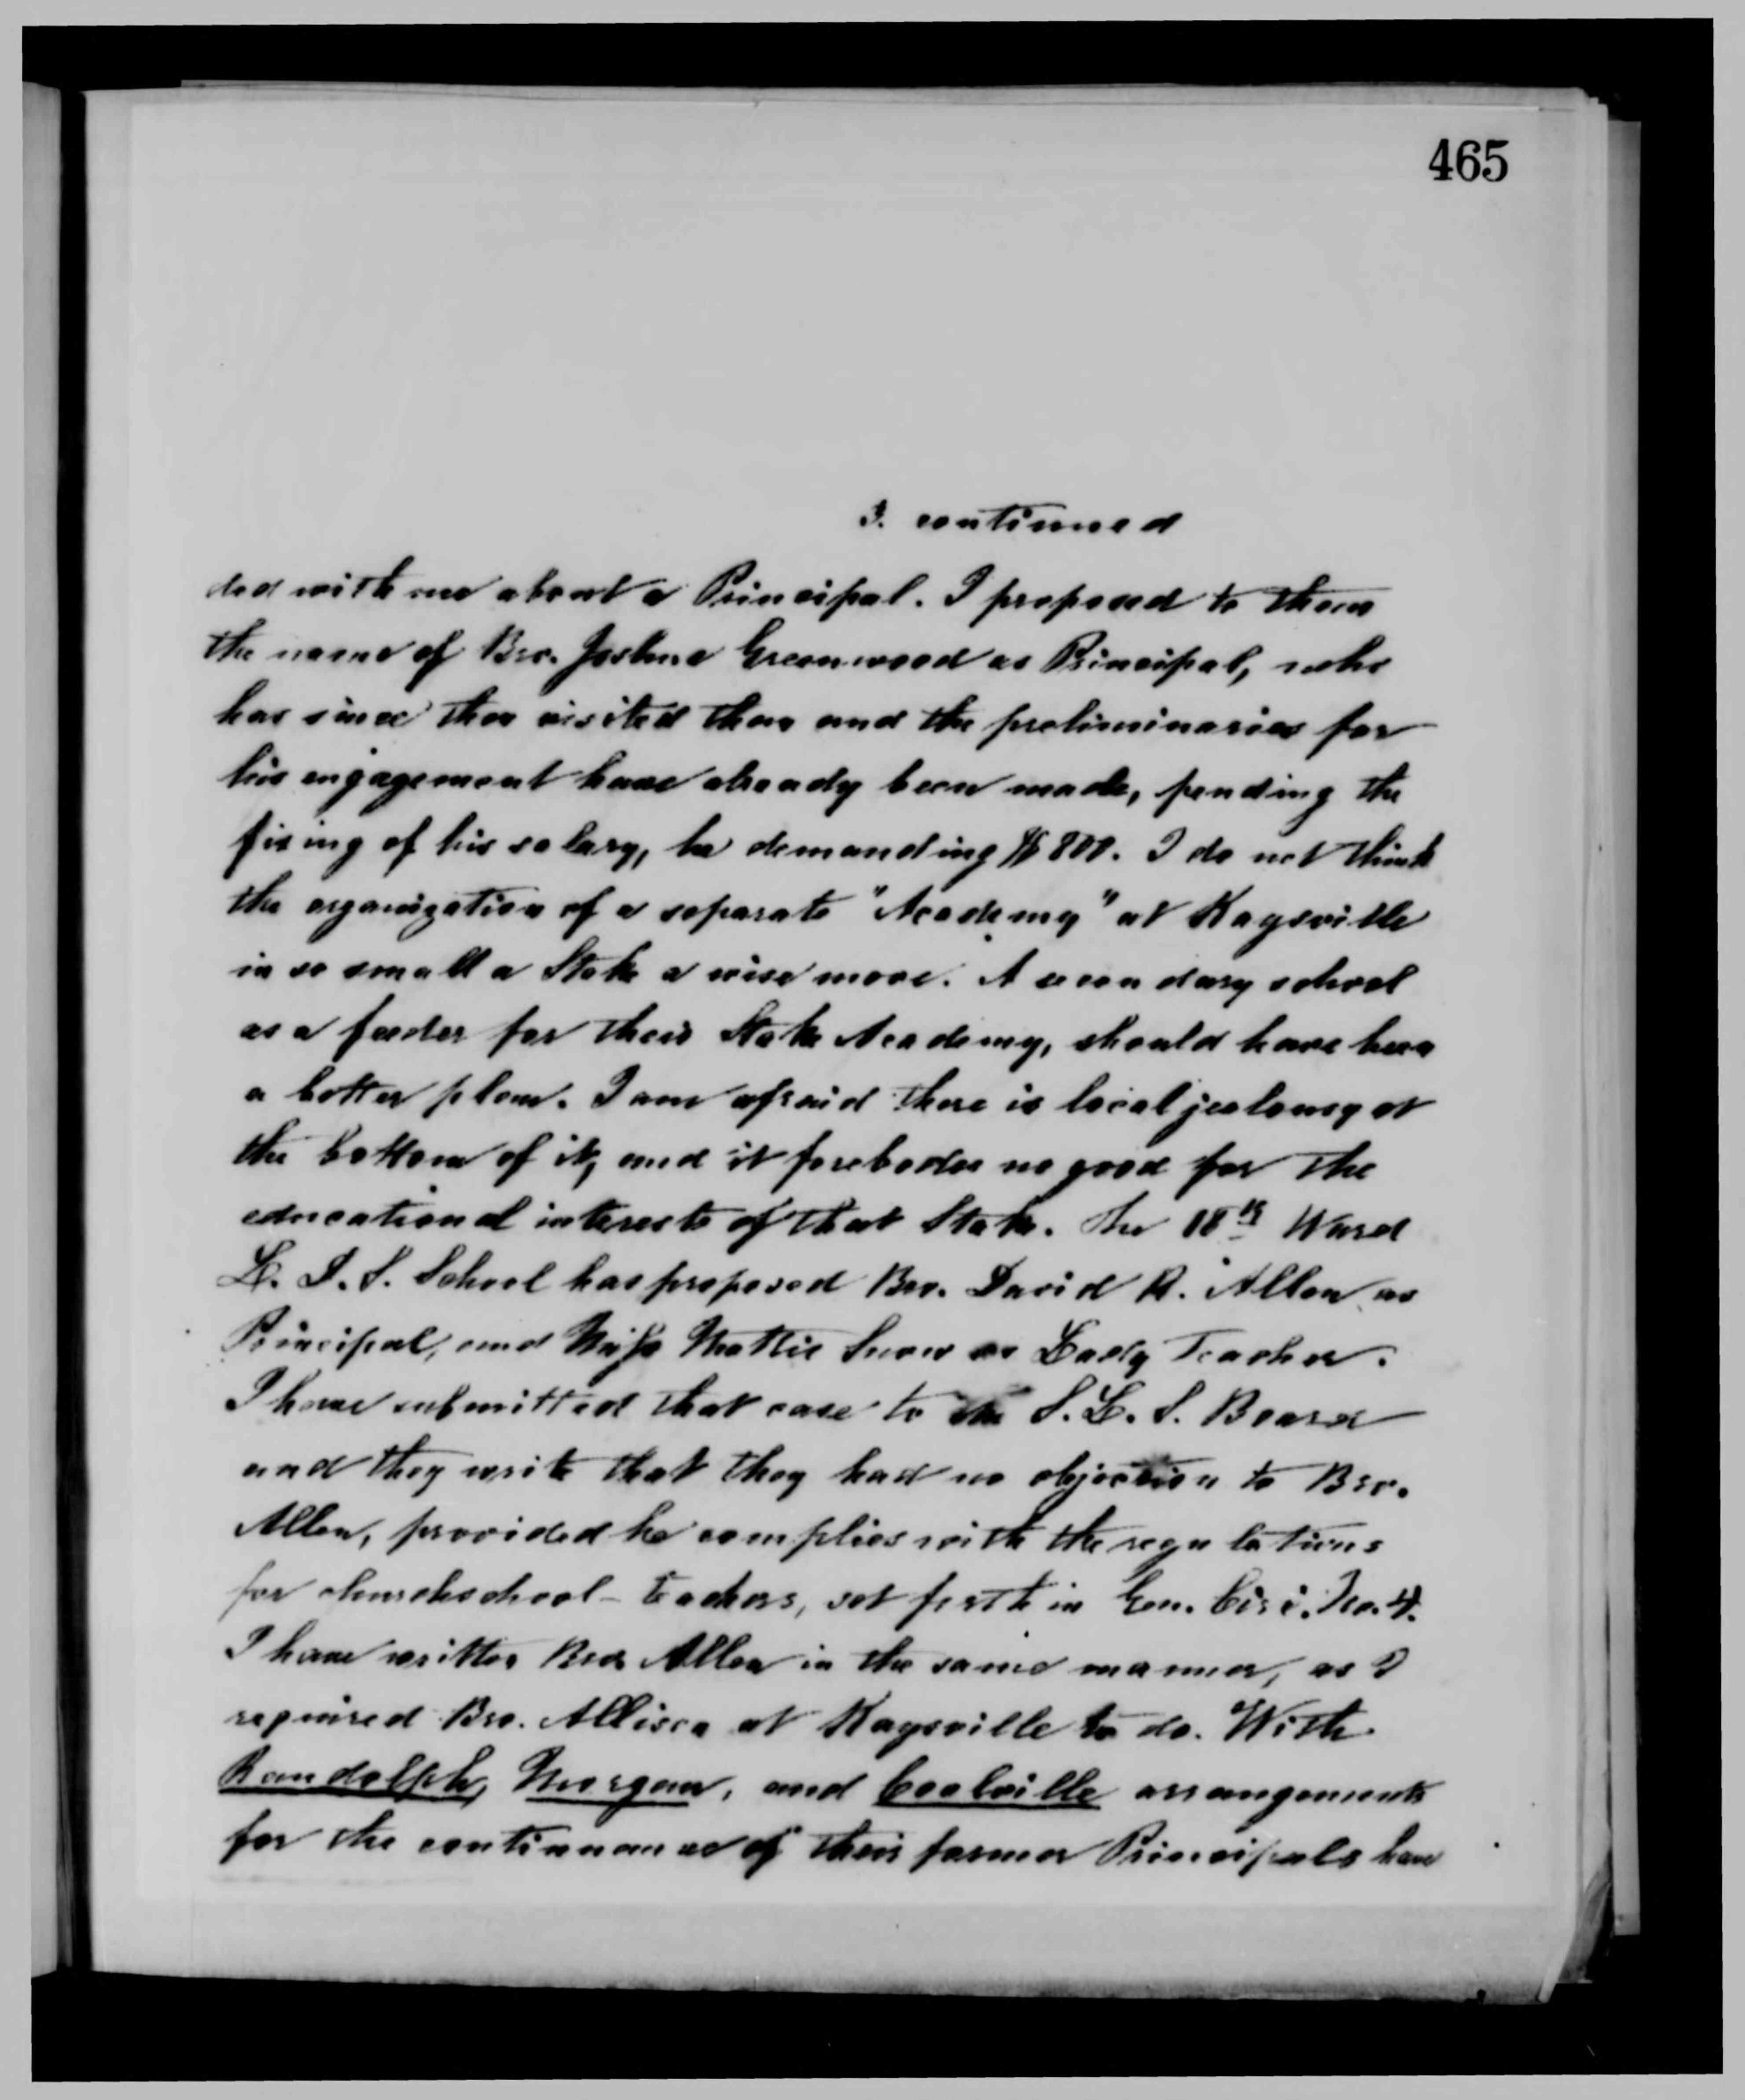 465
3. continued
ded with me about a Principal. I proposed to them
the name of Bro. Joshua Greenwood as Principal, who
has since then visited them and the preliminaries for
his engagement have already been made, pending the
fixing of his salary, he demanding $800. I do not think
the organization of a separate "Academy" at Kaysville
in so small a Stake a wise move. A secondary school
as a feeder for their Stake Academy, should have been
a better plan. I am afraid there is local jealousy at
the bottom of it, and it forebodes no good for the
educational interests of that Stake. The 18th Ward
L. D. S. School has proposed Bro. David R. Allen as
Principal, and Miss Mattie Snow as Lady Teacher.
I have submitted that case to the S. L. S. Board
and they write that they had no objection to Bro.
Allen, provided he complies with the regulations
for churchschool-teachers, set forth in Gen. Circ. No. 4.
I have written Bro. Allen in the same manner, as I
required Bro. Allison at Kaysville to do. With
Randolph, Morgan, and Coalville arrangements
for the continuance of their former Principals have